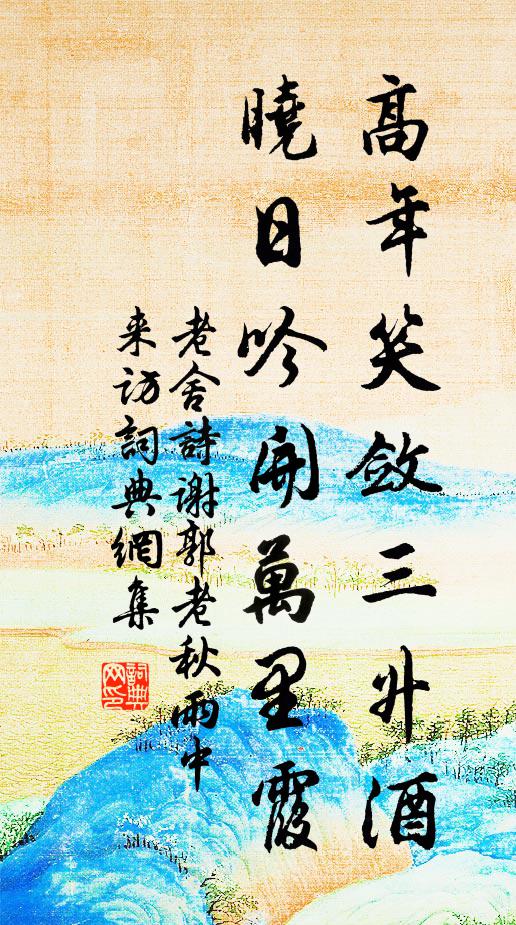 高年笑斂三升酒
曉日吟開萬里霞
老舍詩謝郭老秋雨中
来訪詞典網集
詞典
网印